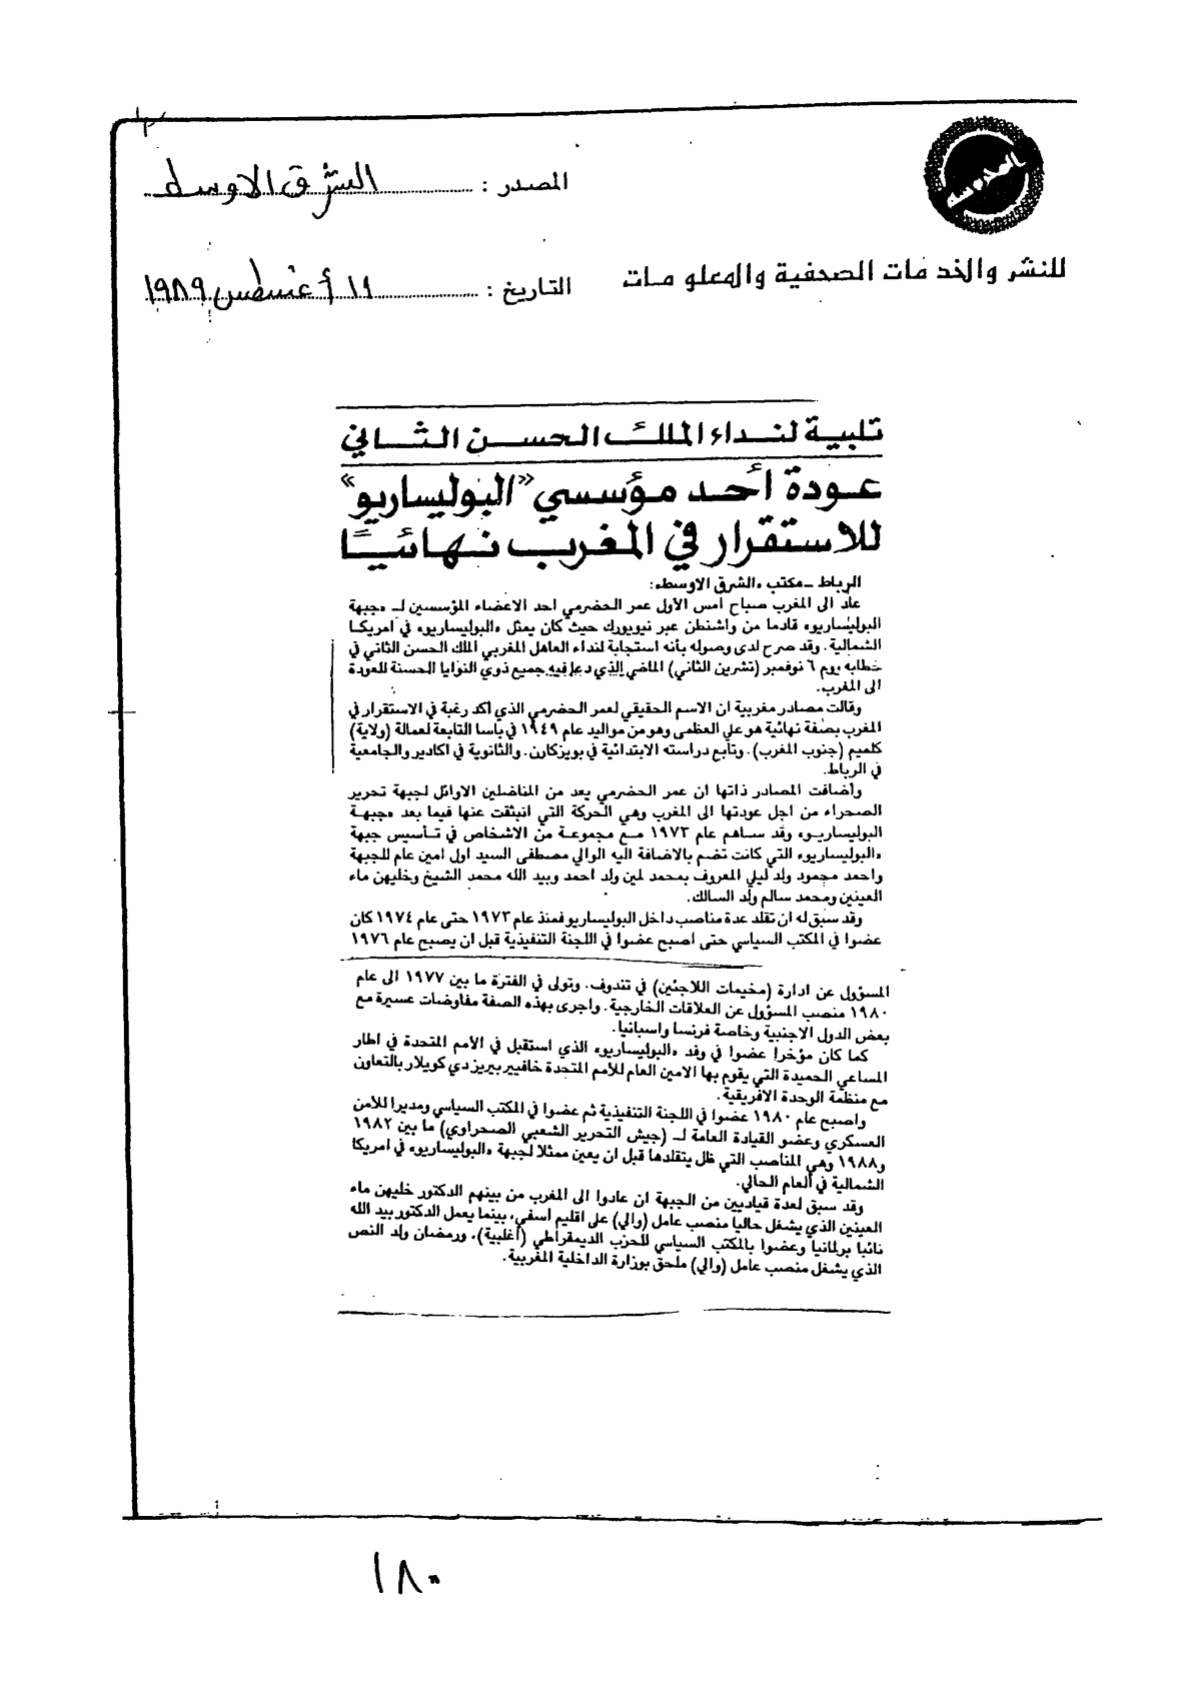 المصدر : الشرق الاوسط
للنشر والخد مات الصحفية والمعلو مات
التاريخ : ١١ أغسطس ١٩٨٩
تلبية لنداء الملك الحسن الثاني
عودة أحد مؤسسي «البوليساريو»
للاستقرار في المغرب نهائيًا
الرباط ـ مكتب «الشرق الاوسط»:
عاد الى المغرب صباح امس الأول عمر الحضرمي احد الاعضاء المؤسسين لـ «جبهة
البوليساريو» قادما من واشنطن عبر نيويورك حيث كان يمثل «البوليساريو» في امريكا
الشمالية. وقد صرح لدى وصوله بأنه استجابة لنداء العاهل المغربي الملك الحسن الثاني في
خطابه يوم ٦ نوفمبر (تشرين الثاني) الماضي الذي دعا فيه جميع ذوي النوايا الحسنة للعودة
الى المغرب.
وقالت مصادر مغربية ان الاسم الحقيقي لعمر الحضرمي الذي أكد رغبة في الاستقرار في
المغرب بصفة نهائية هو علي العظمى وهو من مواليد عام ١٩٤٩ في ياسا التابعة لعمالة (ولاية)
كلميم (جنوب المغرب). وتابع دراسته الابتدائية في بويزكارن. والثانوية في اكادير والجامعية
في الرباط.
واضافت المصادر ذاتها ان عمر الحضرمي يعد من المناضلين الاوائل لجبهة تحرير
الصحراء من اجل عودتها الى المغرب وهي الحركة التي انبثقت عنها فيما بعد «جبهة
البوليساريو» وقد ساهم عام ١٩٧٣ مع مجموعة من الاشخاص في تأسيس جبهة
«البوليساريو» التي كانت تضم بالاضافة اليه الوالي مصطفى السيد اول امين عام للجبهة
واحمد محمود ولد ليلي المعروف بمحمد لمين ولد احمد وبيد الله محمد الشيخ وخليهن ماء
العينين ومحمد سالم ولد السالك.
وقد سبق له ان تقلد عدة مناصب داخل البوليساريو فمنذ عام ١٩٧٣ حتى عام ١٩٧٤ كان
عضوا في المكتب السياسي حتى اصبح عضوا في اللجنة التنفيذية قبل ان يصبح عام ١٩٧٦
المسؤول عن ادارة (مخيمات اللاجئين) في تندوف. وتولى في الفترة ما بين ١٩٧٧ الى عام
١٩٨٠ منصب المسؤول عن العلاقات الخارجية. واجرى بهذه الصفة مفاوضات عسيرة مع
بعض الدول الاجنبية وخاصة فرنسا واسبانيا.
كما كان مؤخرا عضوا في وفد «البوليساريو» الذي استقبل في الأمم المتحدة في اطار
المساعي الحميدة التي يقوم بها الامين العام للأمم المتحدة خافيير بيريز دي كويلار بالتعاون
مع منظمة الوحدة الافريقية.
واصبح عام ١٩٨٠ عضوا في اللجنة التنفيذية ثم عضوا في المكتب السياسي ومديرا للأمن
العسكري وعضو القيادة العامة لـ (جيش التحرير الشعبي الصحراوي) ما بين ١٩٨٢
و١٩٨٨ وهي المناصب التي ظل يتقلدها قبل ان يعين ممثلا لجبهة «البوليساريو» في امريكا
الشمالية في العام الحالي.
وقد سبق لعدة قياديين من الجبهة ان عادوا الى المغرب من بينهم الدكتور خليهن ماء
العينين الذي يشغل حاليا منصب عامل (والي) على اقليم اسفي، بينما يعمل الدكتور بيد الله
نائبا برلمانيا وعضوا بالمكتب السياسي للحزب الديمقراطي (أغلبية)، ورمضان ولد النص
الذي يشغل منصب عامل (والي) ملحق بوزارة الداخلية المغربية.
١٨٠